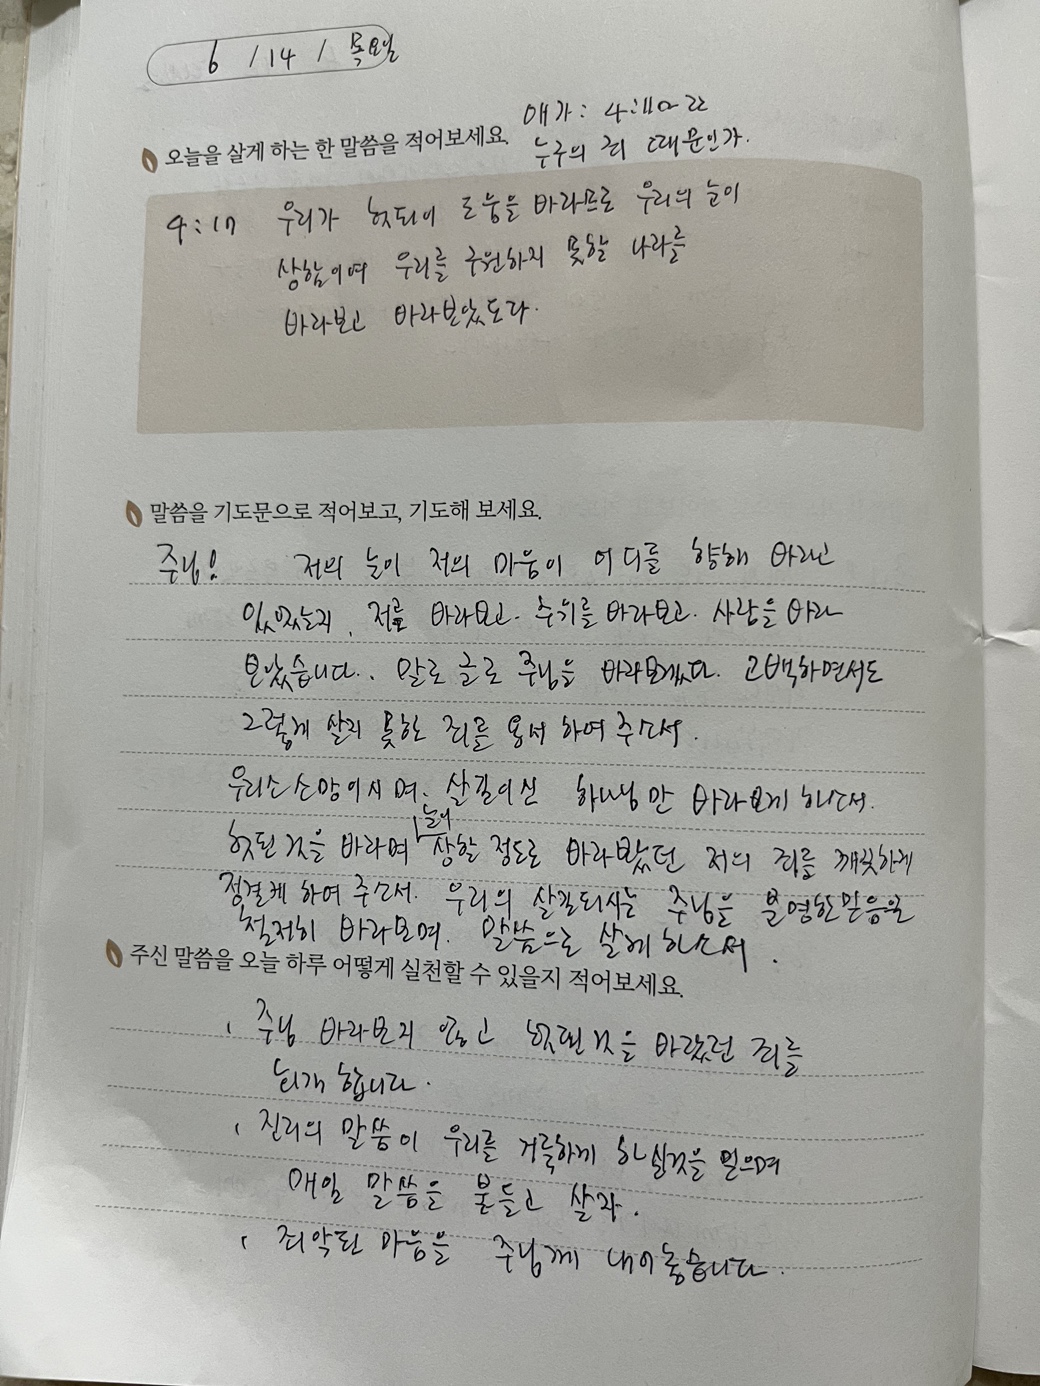 6 / 14 / 목요일
애가 : 4:11~22
오늘을 살게 하는 한 말씀을 적어보세요.
누구의 죄 때문인가.
4:17 우리가 헛되이 도움을 바라므로 우리의 눈이
상함이여 우리를 구원하지 못할 나라를
바라보고 바라보았도다.
말씀을 기도문으로 적어보고, 기도해 보세요.
주님! 저의 눈이 저의 마음이 어디를 향해 바라고
있었는지, 저를 바라보고. 주위를 바라보고. 사람을 바라
보았습니다. 말로 글로 주님을 바라보겠다. 고백하면서도
그렇게 살지 못한 죄를 용서 하여 주소서.
우리소 소망이시며. 살길이신 하나님 만 바라보게 하소서.
눈이
헛된 것을 바라며 상할 정도로 바라봤던 저의 죄를 깨끗하게
정결케 하여 주소서. 우리의 살길되시는 주님을 분명한믿음으로
철저히 바라보며. 말씀으로 살게 하소서.
주신 말씀을 오늘 하루 어떻게 실천할 수 있을지 적어보세요.
주님 바라보지 않고 헛된것을 바랐던 죄를
회개 합니다.
진리의 말씀이 우리를 거룩하게 하실것을 믿으며
매일 말씀을 붙들고 살자.
죄악된 마음을 주님께 내어놓습니다.